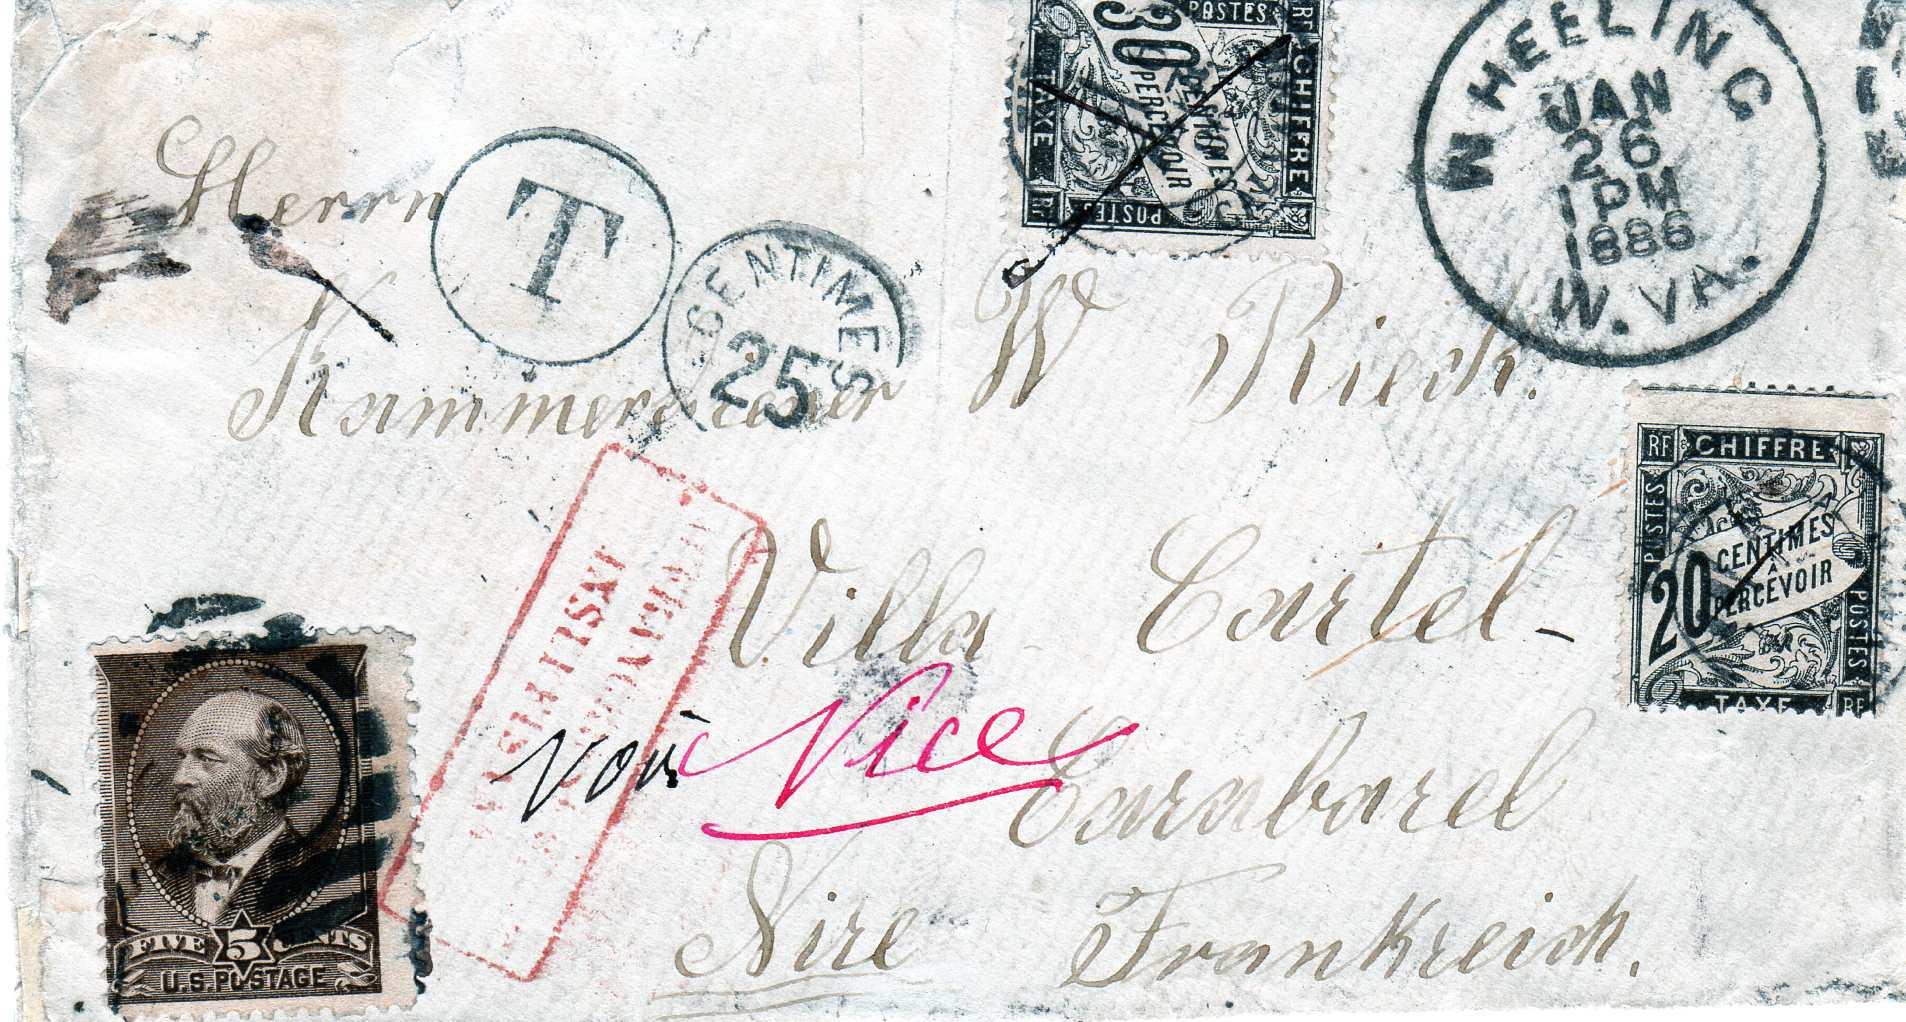 30 CENTIMES À PERCEVOIR
CHIFFRE
TAXE
POSTES
POSTES
RF
RF
WHEELING
JAN
26
1 PM
1886
W. VA.
Herrn
T
CENTIMES
25
Kammerdiener W Rieck.
RF CHIFFRE
POSTES
20 CENTIMES
À
PERCEVOIR
POSTES
TAXE RF
Villa Cartel-
voir Nice
Carabacel
Nice Frankreich.
FIVE 5 CENTS
U.S. POSTAGE